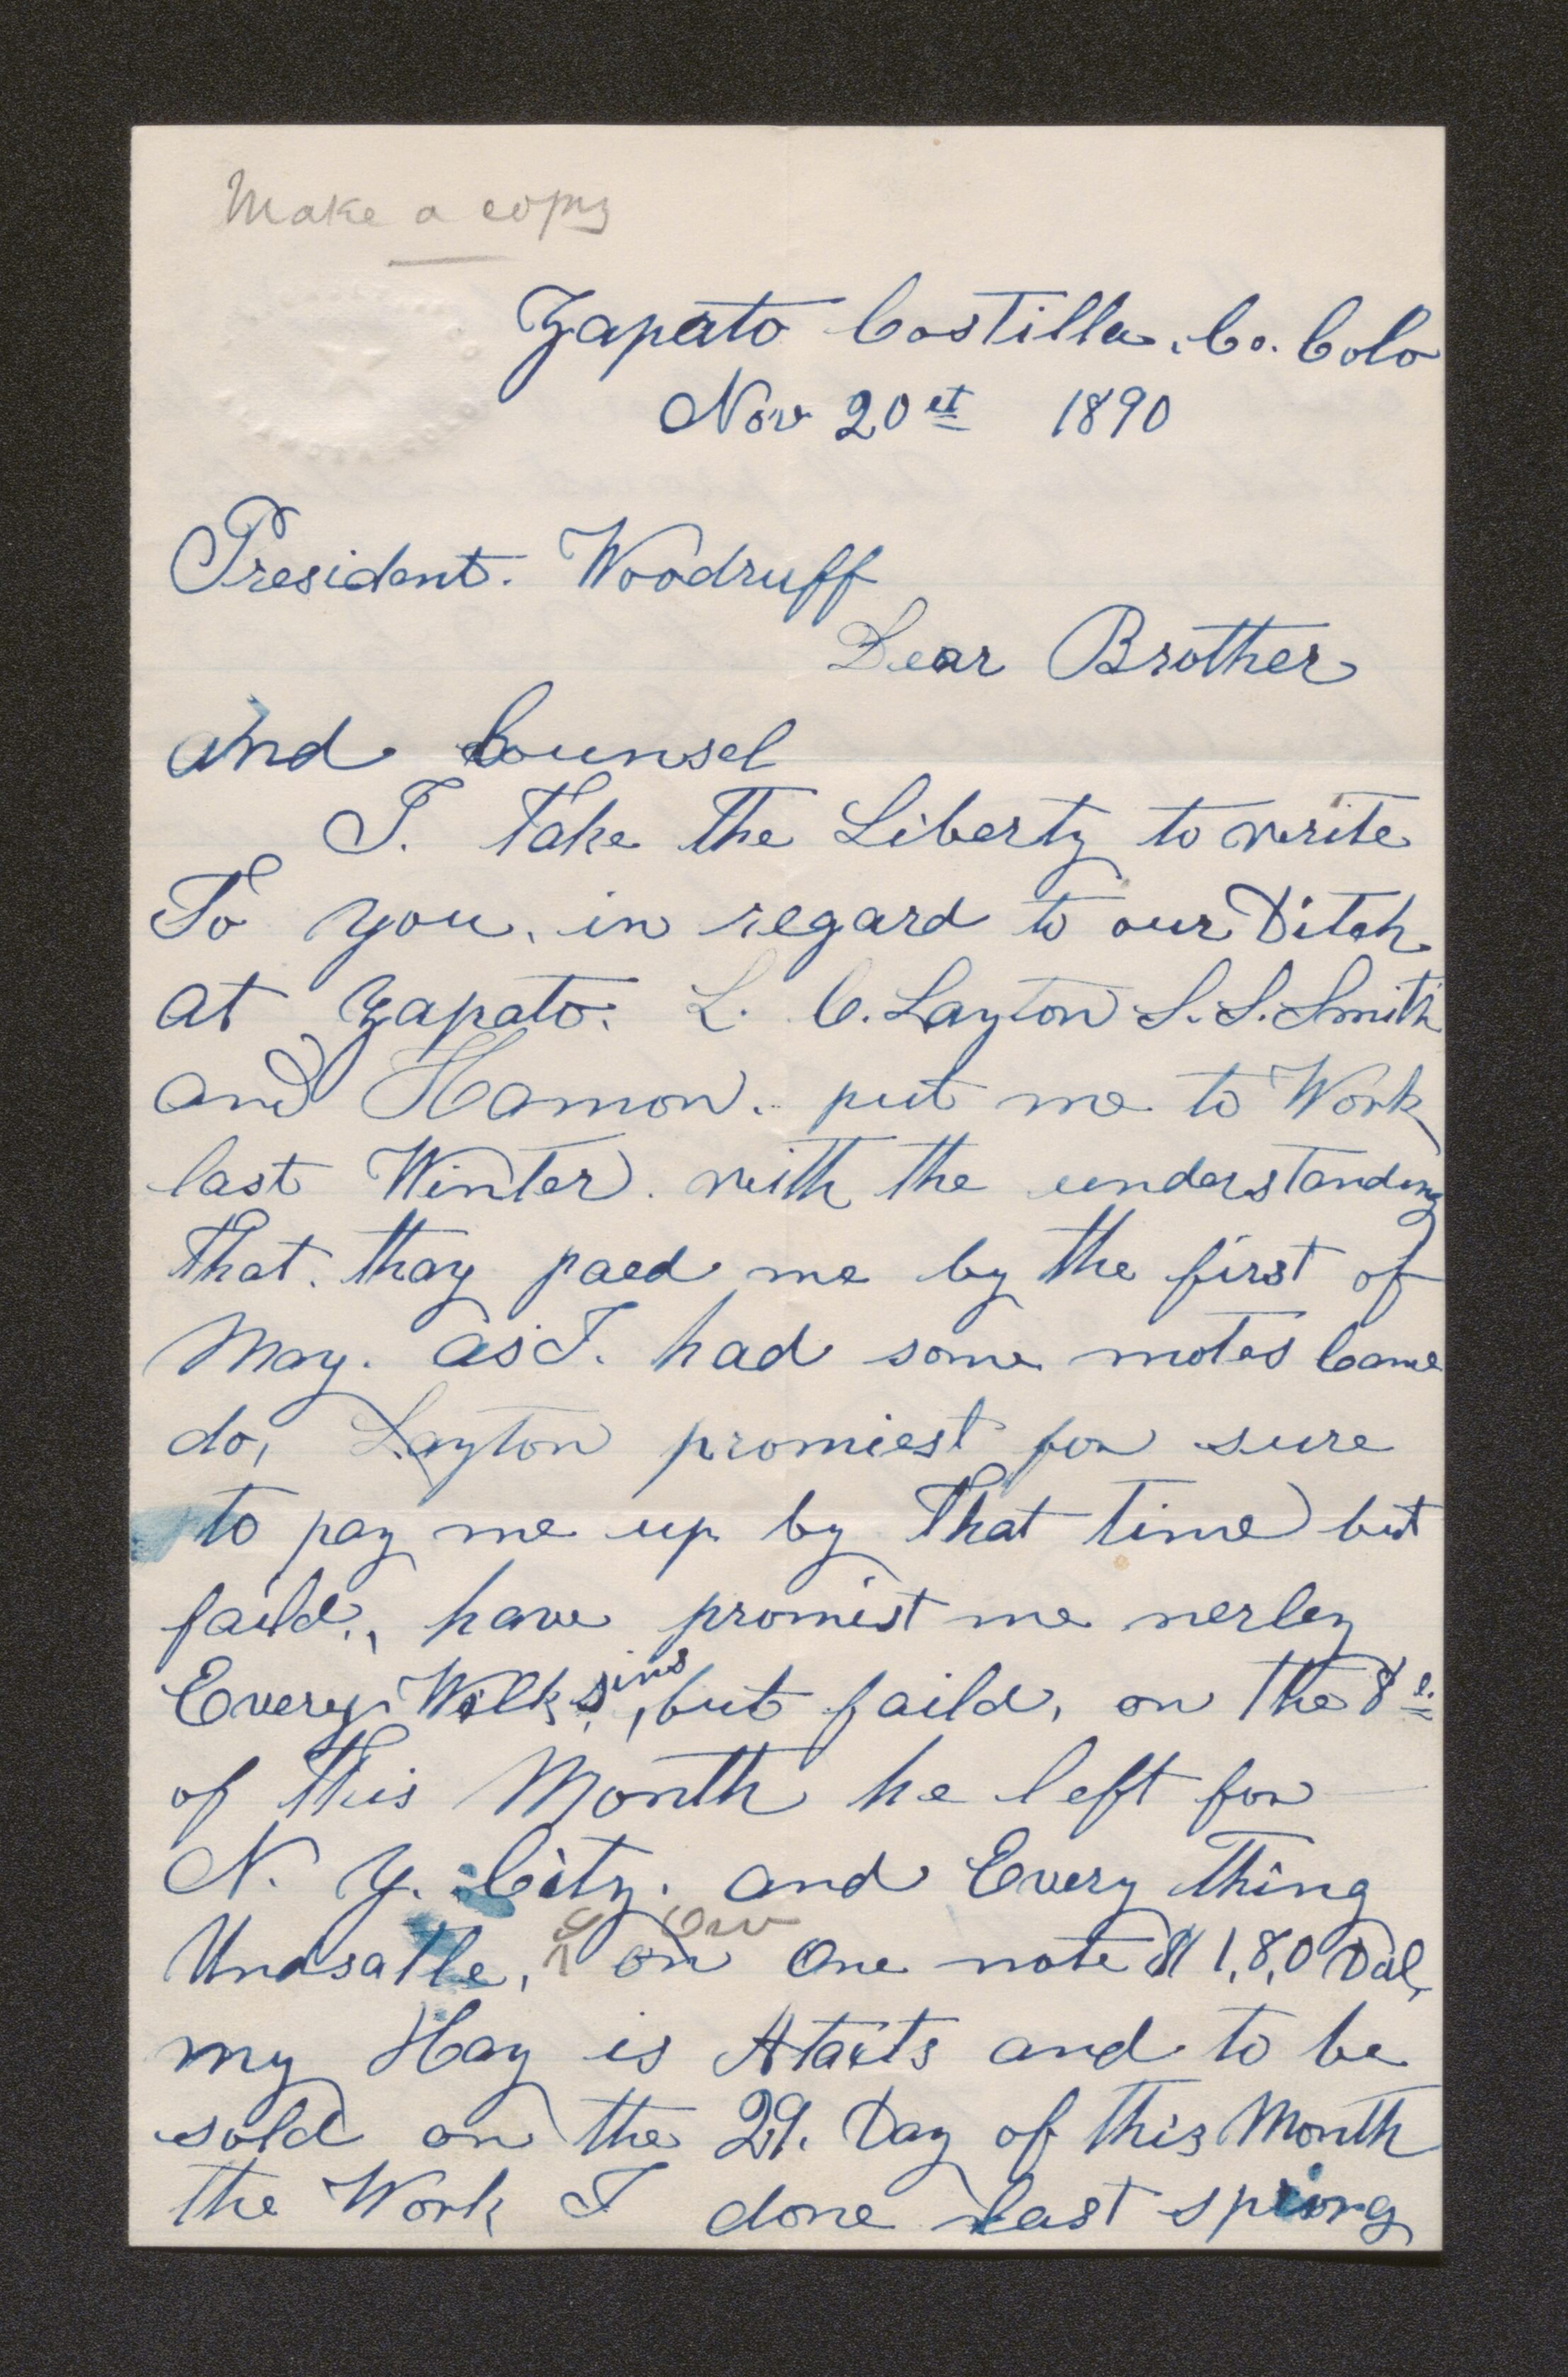 Make a copy
Zapato Costilla. Co. Colo
Nov 20et 1890
President. Woodruff
Dear Brother
and Counsel
I. take the Liberty to write
To you, in regard to our Ditch
at Zapato. L. C. Layton S. S. Smith
and Hamon. put me to Work
last Winter. with the understanding
that. thay paed me by the first of
May. as I. had some notes Came
do, Layton promiest for sure
to pay me up by That time but
faild., have promist me nerley
Every Week sins, but faild, on the 8
of this Month he left for
N. Y. City. and Every thing
Unasatle, I ow on One note $ 1,8,0 Dol,
my Hay is Atacts and to be
sold on the 29. Day of this Month
the Work I done last spring